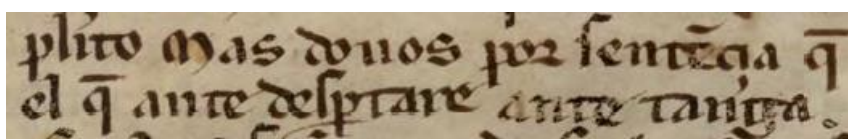 plito mas douos por sentẽcia q̃
el q̃ ante despertare ante tanga.